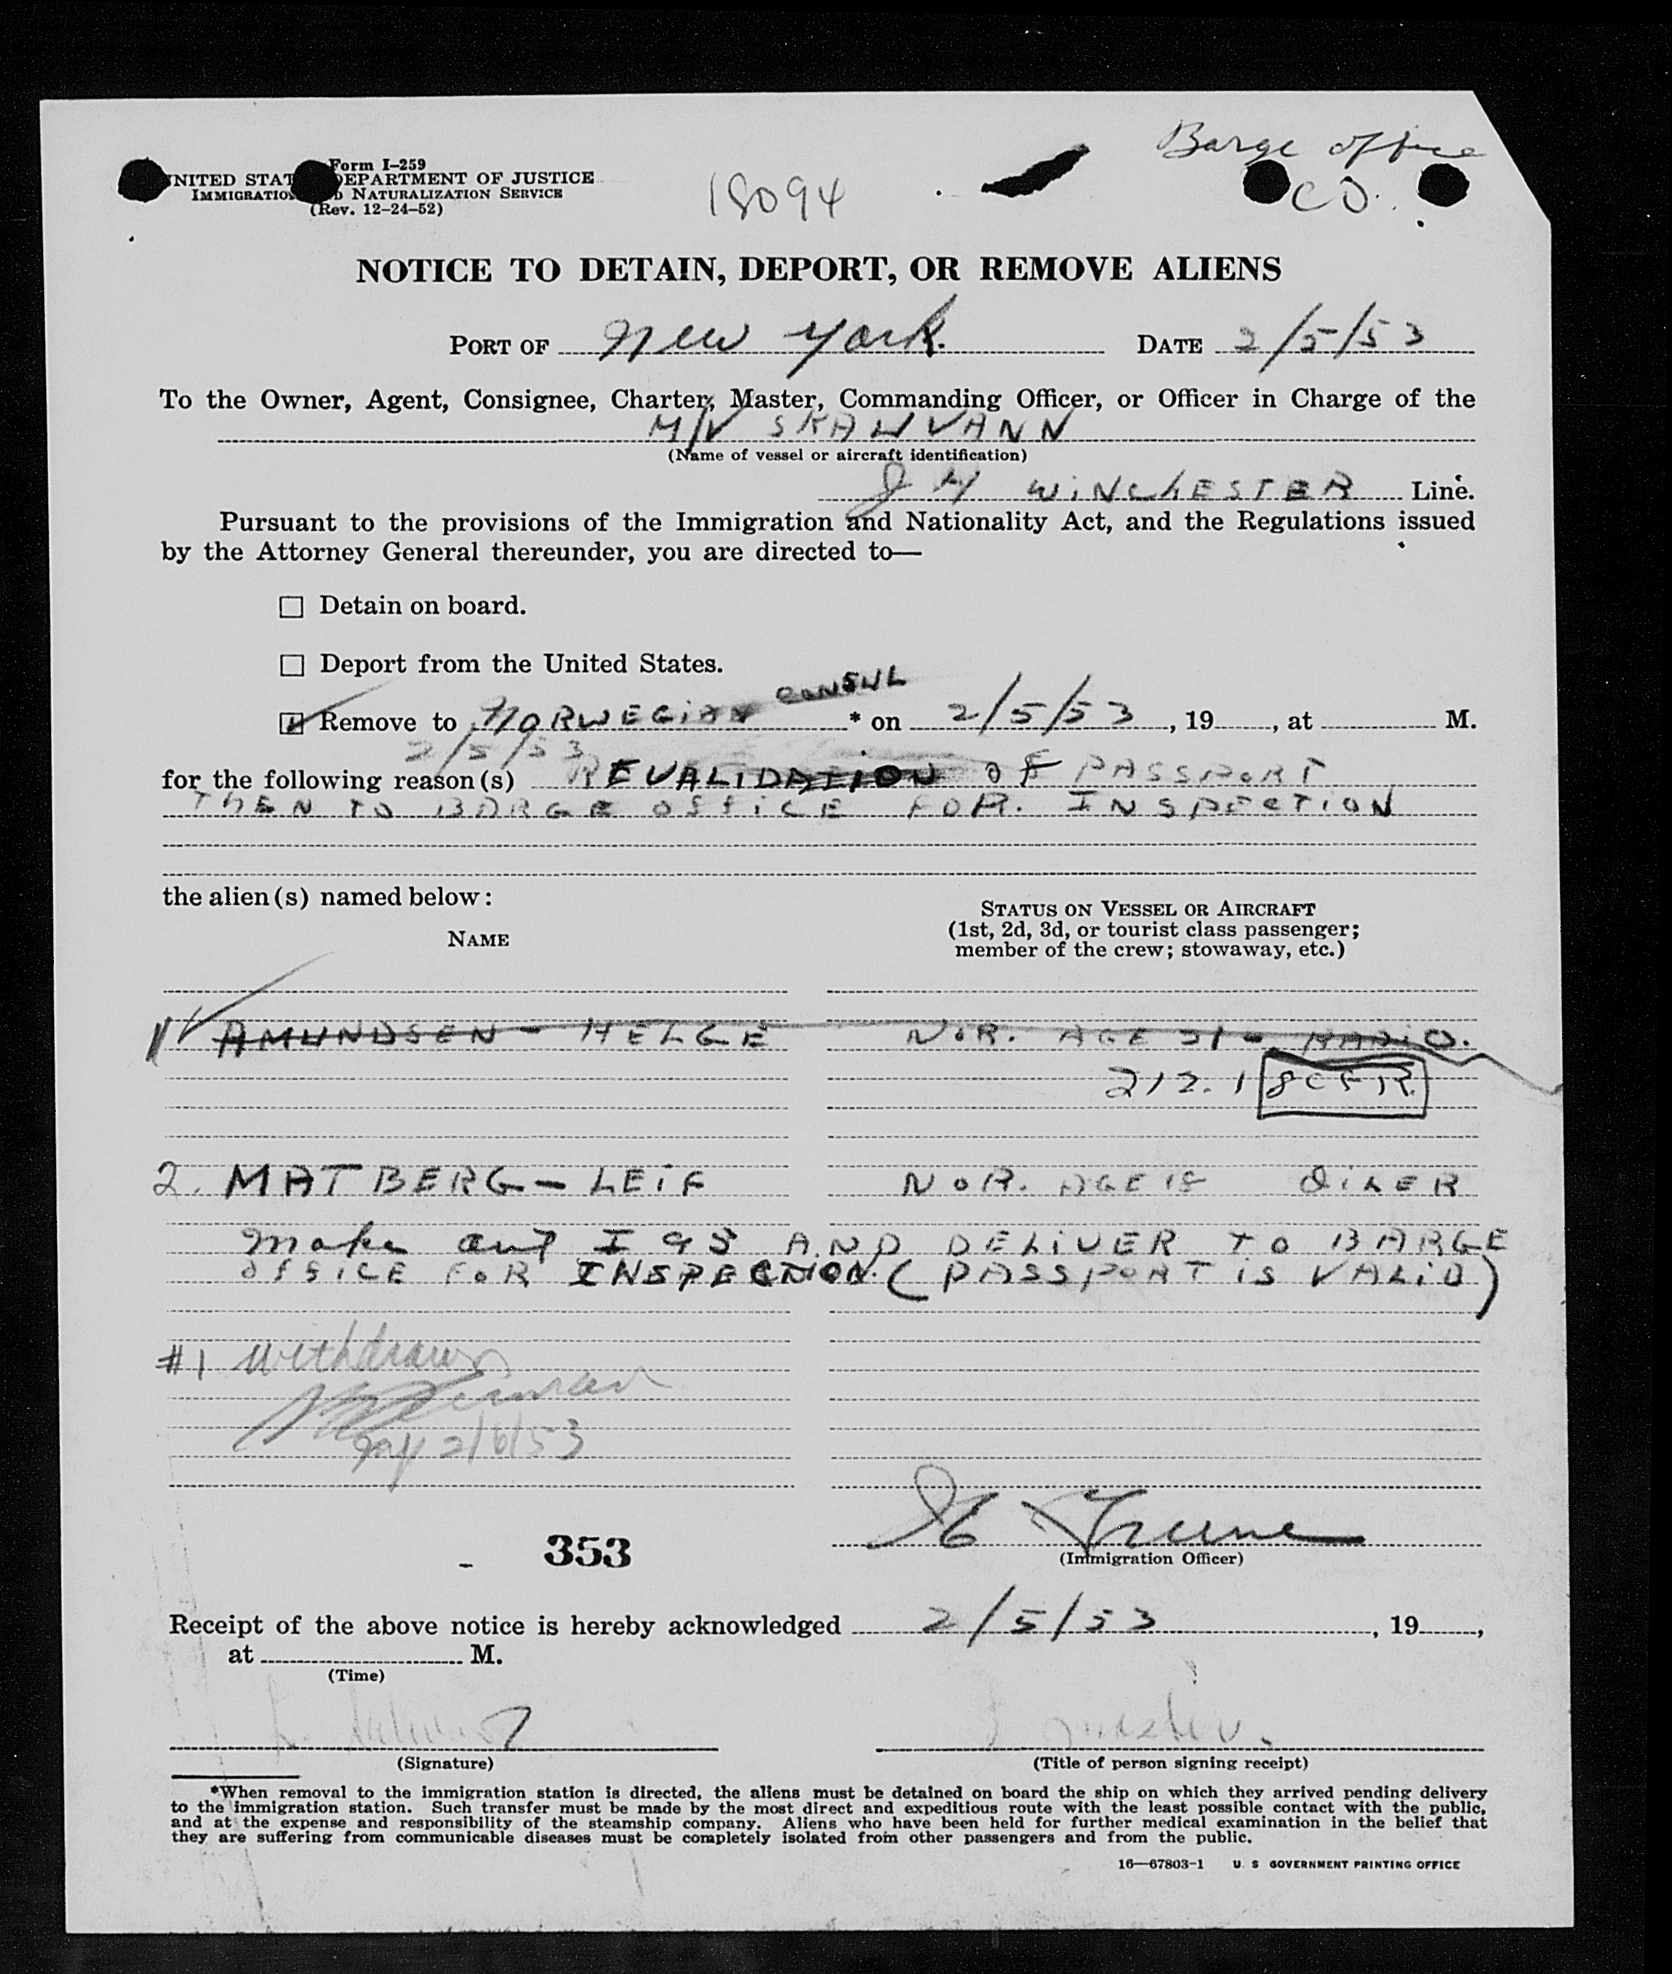 Barge office
CO.
Form I-259
UNITED STATES DEPARTMENT OF JUSTICE
IMMIGRATION AND NATURALIZATION SERVICE
(Rev. 12-24-52)
18094
NOTICE TO DETAIN, DEPORT, OR REMOVE ALIENS
PORT OF New York. DATE 2/5/53
To the Owner, Agent, Consignee, Charter, Master, Commanding Officer, or Officer in Charge of the
M/V SKAUVANN
(Name of vessel or aircraft identification)
J H WINCHESTER Line.
Pursuant to the provisions of the Immigration and Nationality Act, and the Regulations issued
by the Attorney General thereunder, you are directed to—
☐ Detain on board.
☐ Deport from the United States.
☑ Remove to NORWEGIAN CONSUL * on 2/5/53, 19, at M.
2/5/53
for the following reason(s) REVALIDATION OF PASSPORT
THEN TO BARGE OFFICE FOR. INSPECTION
the alien(s) named below:
NAME
STATUS ON VESSEL OR AIRCRAFT
(1st, 2d, 3d, or tourist class passenger;
member of the crew; stowaway, etc.)
AMUNDSEN - HELGE NOR. AGE 21 - RADIO.
212.1 8CFR
2. MATBERG - LEIF NOR. AGE 18 OILER
Make out I 95 AND DELIVER TO BARGE
OFFICE FOR INSPECTION. (PASSPORT IS VALID)
#1 Withdrawn
2/6/53
353
(Immigration Officer)
Receipt of the above notice is hereby acknowledged 2/5/53, 19,
at M.
(Time)
(Signature)
(Title of person signing receipt)
*When removal to the immigration station is directed, the aliens must be detained on board the ship on which they arrived pending delivery
to the immigration station. Such transfer must be made by the most direct and expeditious route with the least possible contact with the public,
and at the expense and responsibility of the steamship company. Aliens who have been held for further medical examination in the belief that
they are suffering from communicable diseases must be completely isolated from other passengers and from the public.
16—67803-1 U. S GOVERNMENT PRINTING OFFICE